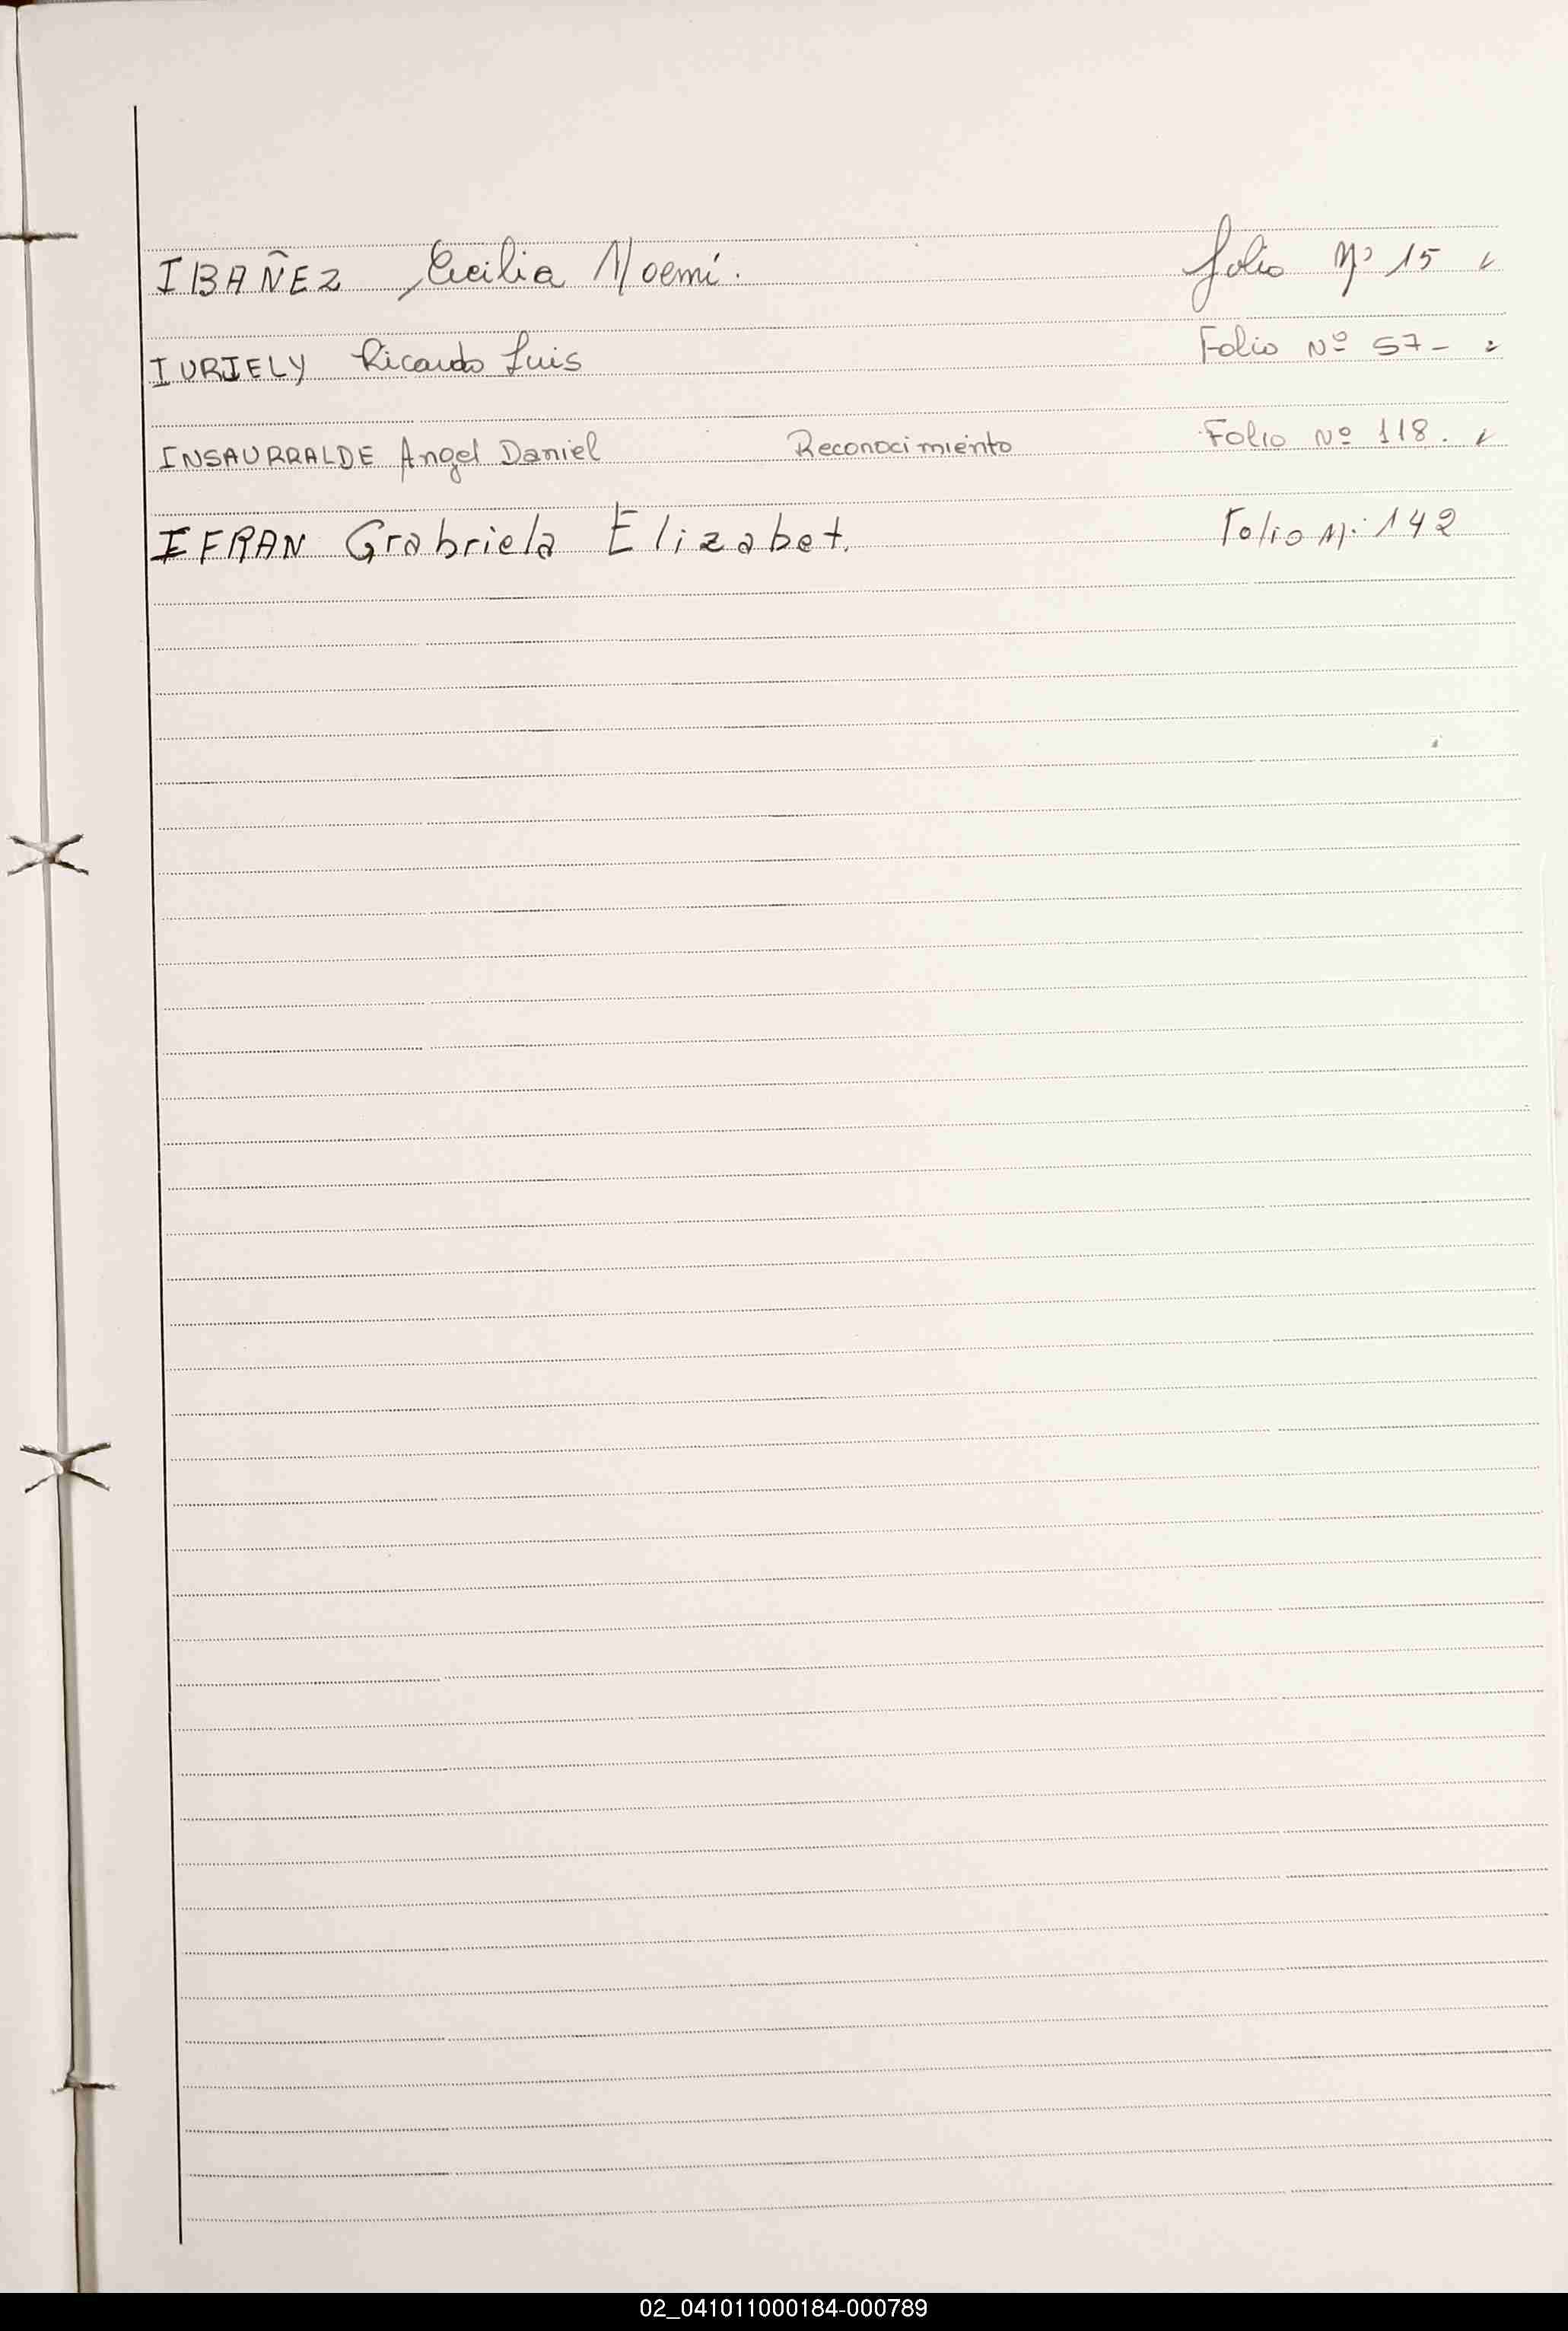 IBAÑEZ Cecilia Noemí. Folio Nº 15
IURIELY Ricardo Luis Folio Nº 57-
INSAURRALDE Angel Daniel Reconocimiento Folio Nº 118.
IFRAN Grabriela Elizabet. Folio N: 142
02_041011000184-000789